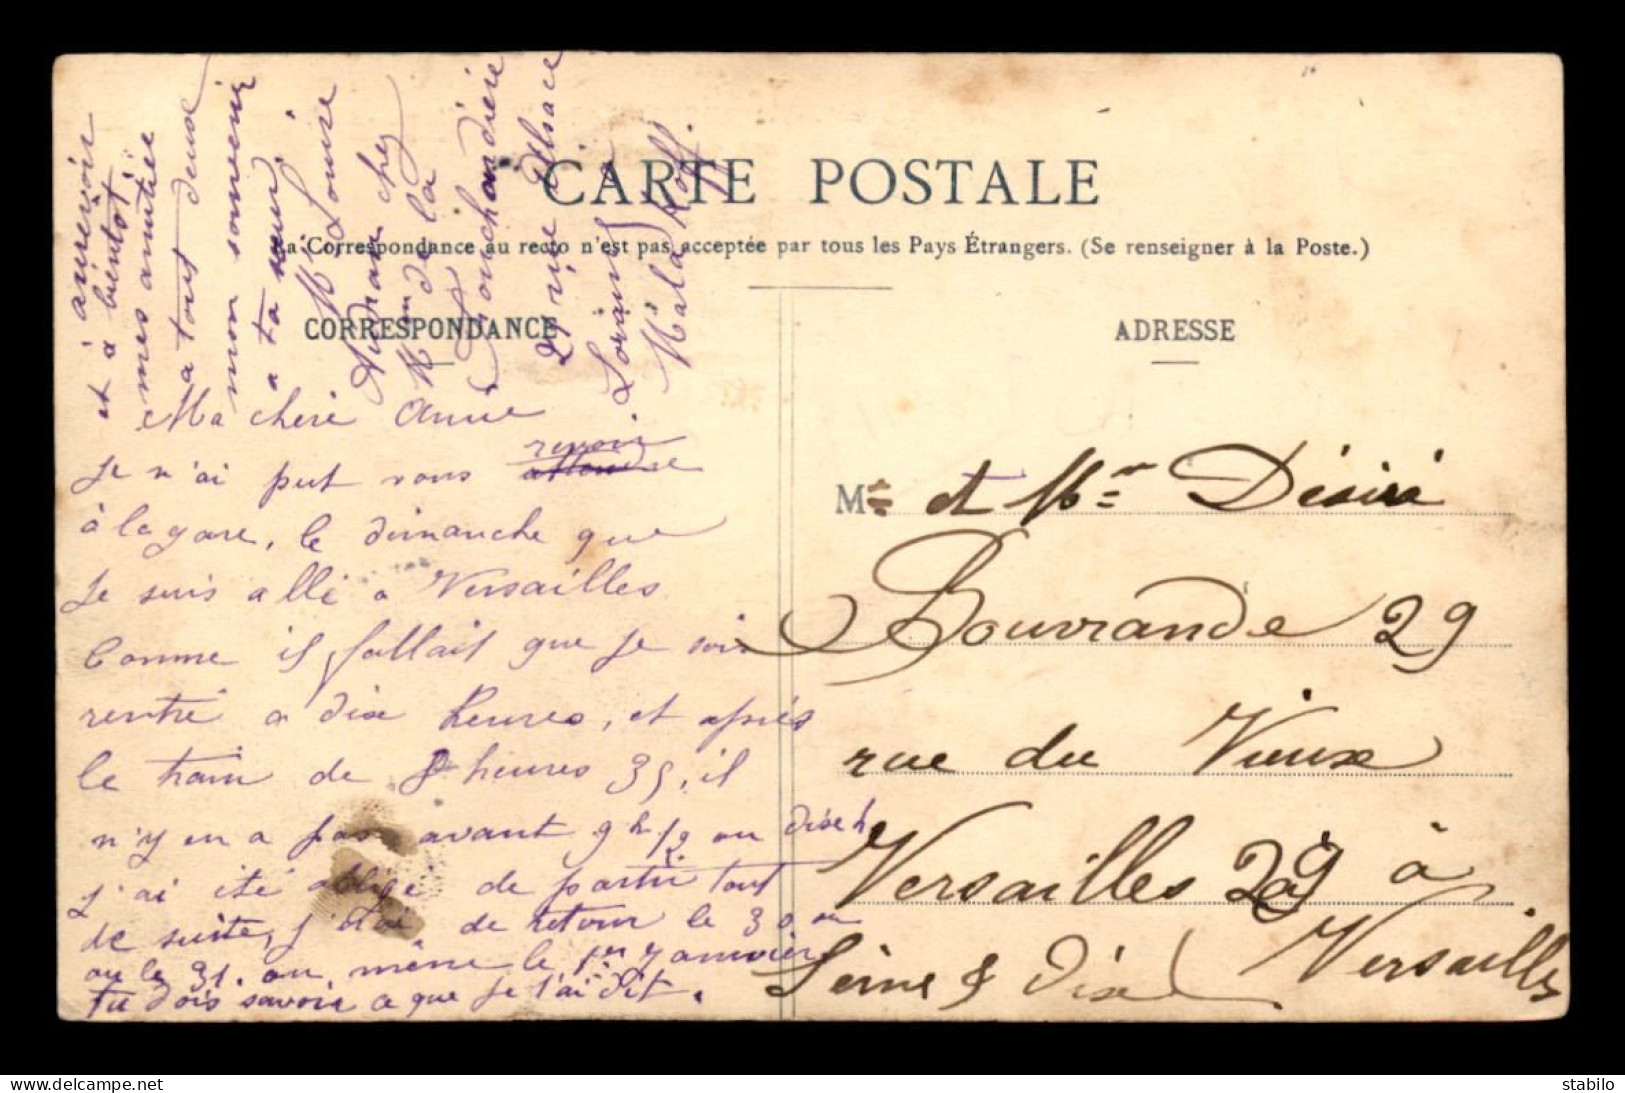 CARTE POSTALE
La Correspondance au recto n'est pas acceptée par tous les Pays Étrangers. (Se renseigner à la Poste.)
CORRESPONDANCE
Ma cherie Anna
Je n'ai put vous attendre revoir
à la gare, le dimanche que
Je suis allé a Versailles
Comme il fallait que je sois
rentré a dix heures, et après
le train de 8 heures 35, il
n'y en a pas avant 9 h 1/2 ou dix h
j'ai été obligé de partir tout
de suite, j' de retour le 30 ou
ou le 31. ou même le 1er Janvier
tu dois savoir a que je t'ai dit.
à aurevoir
et à bientôt
mes amitiée
a tout deux
mon souvenir
a ta sœur
M Louise
chez
Mm de la
2 rue d'Alsace
Loraine a
Malakoff.
ADRESSE
M et Mr Désiré
Bouvrande 29
rue du Vieux
Versailles 29 à
Versailles
Seine & Oise
stabilo